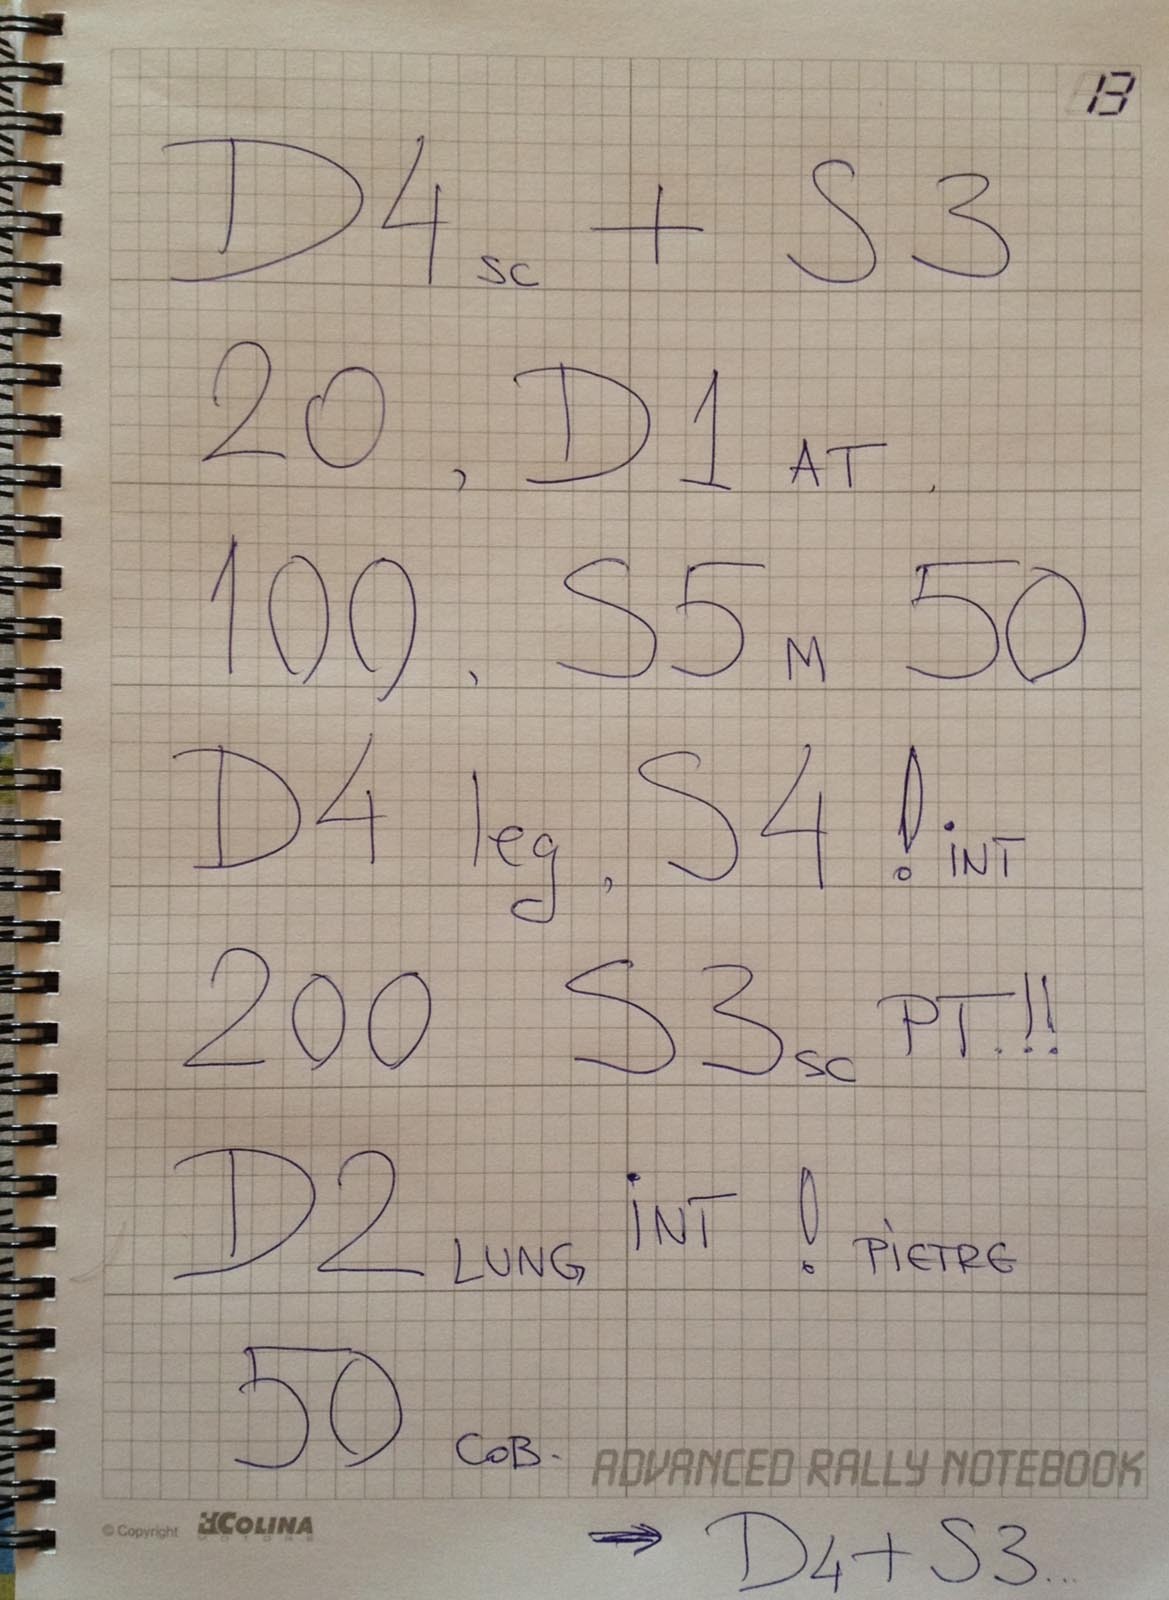 13
D4 sc + S3
20, D1 AT.
100, S5 M 50
D4 leg, S4 ! INT
200 S3 sc PT!!
D2 LUNG INT ! PIETRE
50 COB.
ADVANCED RALLY NOTEBOOK
© Copyright COLINA
→ D4+S3...